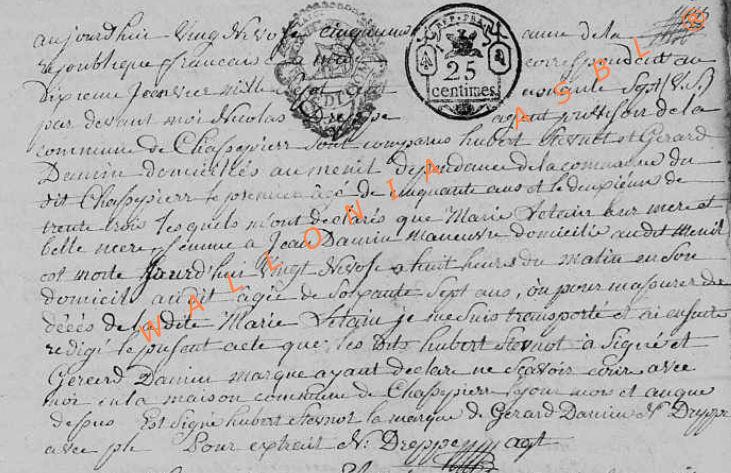 aujourd'hui vingt Nivose cinquieme année de la
republique francaise correspondant au
Dixieme Janvier mille sept cent nonante Sept (V.S)
par devant moi Nicolas Dreppe agent provisoir de la
commune de Chassepierr sont comparus hubert Stevnot et Gerard
Damin domiciliés au menil dependance de la commune du
dit Chassepierr le premier agé de cinquante ans et le deuxieme de
trente trois lesquels m'ont declarés que Marie Letain leur mere et
belle mere femme a Jean Damin maneuvre domicilié audit menil
est morte Jourd'hui vingt Nivose a huit heures du matin en son
domicil audit agée de soixante sept ans, ou pour m'assurer de
décés de la dite Marie Letain je me suis transporté et ai ensuite
redigé le present acte que les dits hubert Stevnot a signé et
Gererd Damin marque ayant declare ne scavoir ecrir avec
moi en la maison commune de Chassepierr le jour mois et an que
dessus Est signé hubert Stevnot la marque de Gerard Damin N Dreppe
avec ph Pour extrait N: Dreppe agt
REP. FRA.
25
centimes
WALLONIA ASBL ®